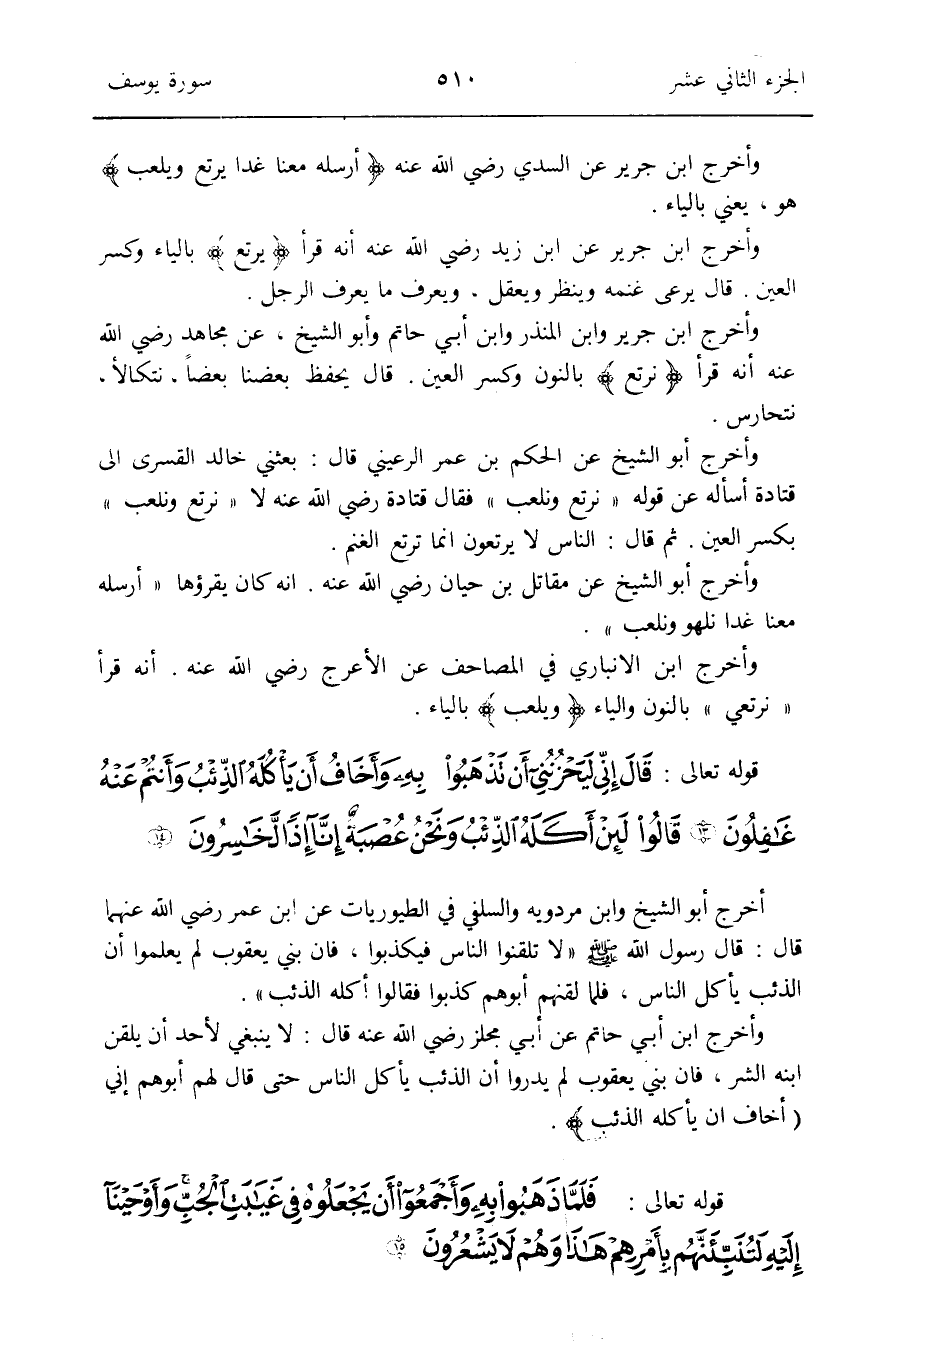 الجزء الثاني عشر ٥١٠ سورة يوسف
وأخرج ابن جرير عن السدي رضي الله عنه ﴿ أرسله معنا غدا يرتع ويلعب ﴾
هو ، يعني بالياء .
وأخرج ابن جرير عن ابن زيد رضي الله عنه أنه قرأ ﴿ يرتع ﴾ بالياء وكسر
العين . قال يرعى غنمه وينظر ويعقل . ويعرف ما يعرف الرجل .
وأخرج ابن جرير وابن المنذر وابن أبي حاتم وأبو الشيخ ، عن مجاهد رضي الله
عنه أنه قرأ ﴿ نرتع ﴾ بالنون وكسر العين . قال يحفظ بعضنا بعضاً . نتكالأ .
نتحارس .
وأخرج أبو الشيخ عن الحكم بن عمر الرعيني قال : بعثني خالد القسرى الى
قتادة أسأله عن قوله « نرتع ونلعب » فقال قتادة رضي الله عنه لا « نرتع ونلعب »
بكسر العين . ثم قال : الناس لا يرتعون انما ترتع الغنم .
وأخرج أبو الشيخ عن مقاتل بن حيان رضي الله عنه . انه كان يقرؤها « أرسله
معنا غدا نلهو ونلعب » .
وأخرج ابن الانباري في المصاحف عن الأعرج رضي الله عنه . أنه قرأ
« نرتعي » بالنون والياء ﴿ ويلعب ﴾ بالياء .
قوله تعالى : قَالَ إِنِّي لَيَحْزُنُنِيٓ أَن تَذْهَبُوا۟ بِهِۦ وَأَخَافُ أَن يَأْكُلَهُ ٱلذِّئْبُ وَأَنتُمْ عَنْهُ
غَٰفِلُونَ ١٣ قَالُوا۟ لَئِنْ أَكَلَهُ ٱلذِّئْبُ وَنَحْنُ عُصْبَةٌ إِنَّآ إِذًا لَّخَٰسِرُونَ ١٤
أخرج أبو الشيخ وابن مردويه والسلفي في الطيوريات عن ابن عمر رضي الله عنهما
قال : قال رسول الله ﷺ «لا تلقنوا الناس فيكذبوا ، فان بني يعقوب لم يعلموا أن
الذئب يأكل الناس ، فلما لقنهم أبوهم كذبوا فقالوا أكله الذئب» .
وأخرج ابن أبي حاتم عن أبي مجلز رضي الله عنه قال : لا ينبغي لأحد أن يلقن
ابنه الشر ، فان بني يعقوب لم يدروا أن الذئب يأكل الناس حتى قال لهم أبوهم إني
( أخاف ان يأكله الذئب ﴾ .
قوله تعالى : فَلَمَّا ذَهَبُوا۟ بِهِۦ وَأَجْمَعُوٓا۟ أَن يَجْعَلُوهُ فِي غَيَٰبَتِ ٱلْجُبِّ ۚ وَأَوْحَيْنَآ
إِلَيْهِ لَتُنَبِّئَنَّهُم بِأَمْرِهِمْ هَٰذَا وَهُمْ لَا يَشْعُرُونَ ١٥